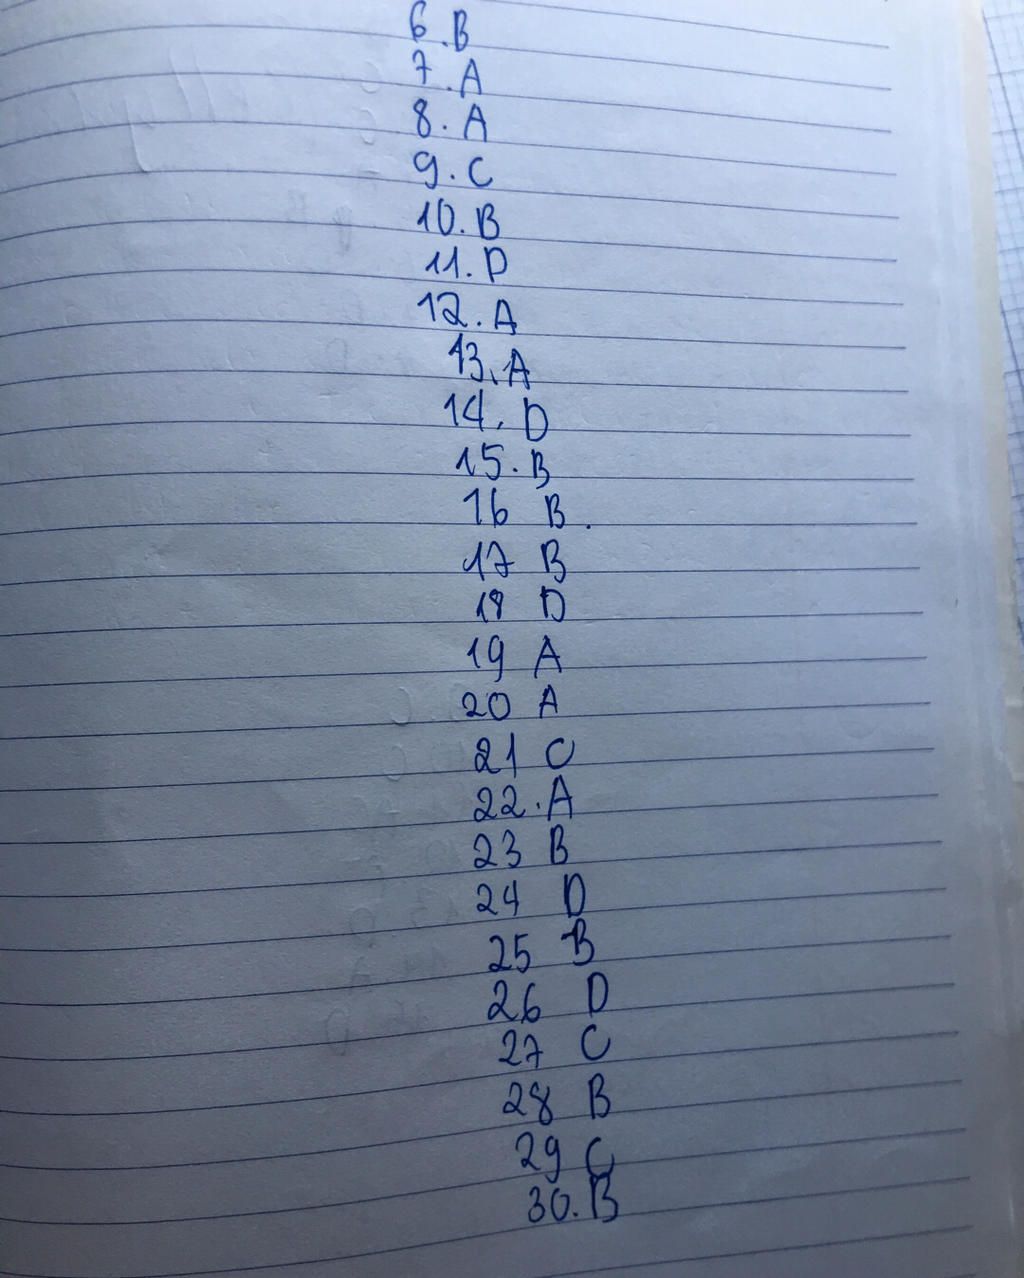 6.B
7.A
8.A
9.C
10.B
11.D
12.A
13.A
14.D
15.B
16 B.
17 B
18 D
19 A
20 A
21 C
22.A
23 B
24 D
25 B
26 D
27 C
28 B
29 C
30.B